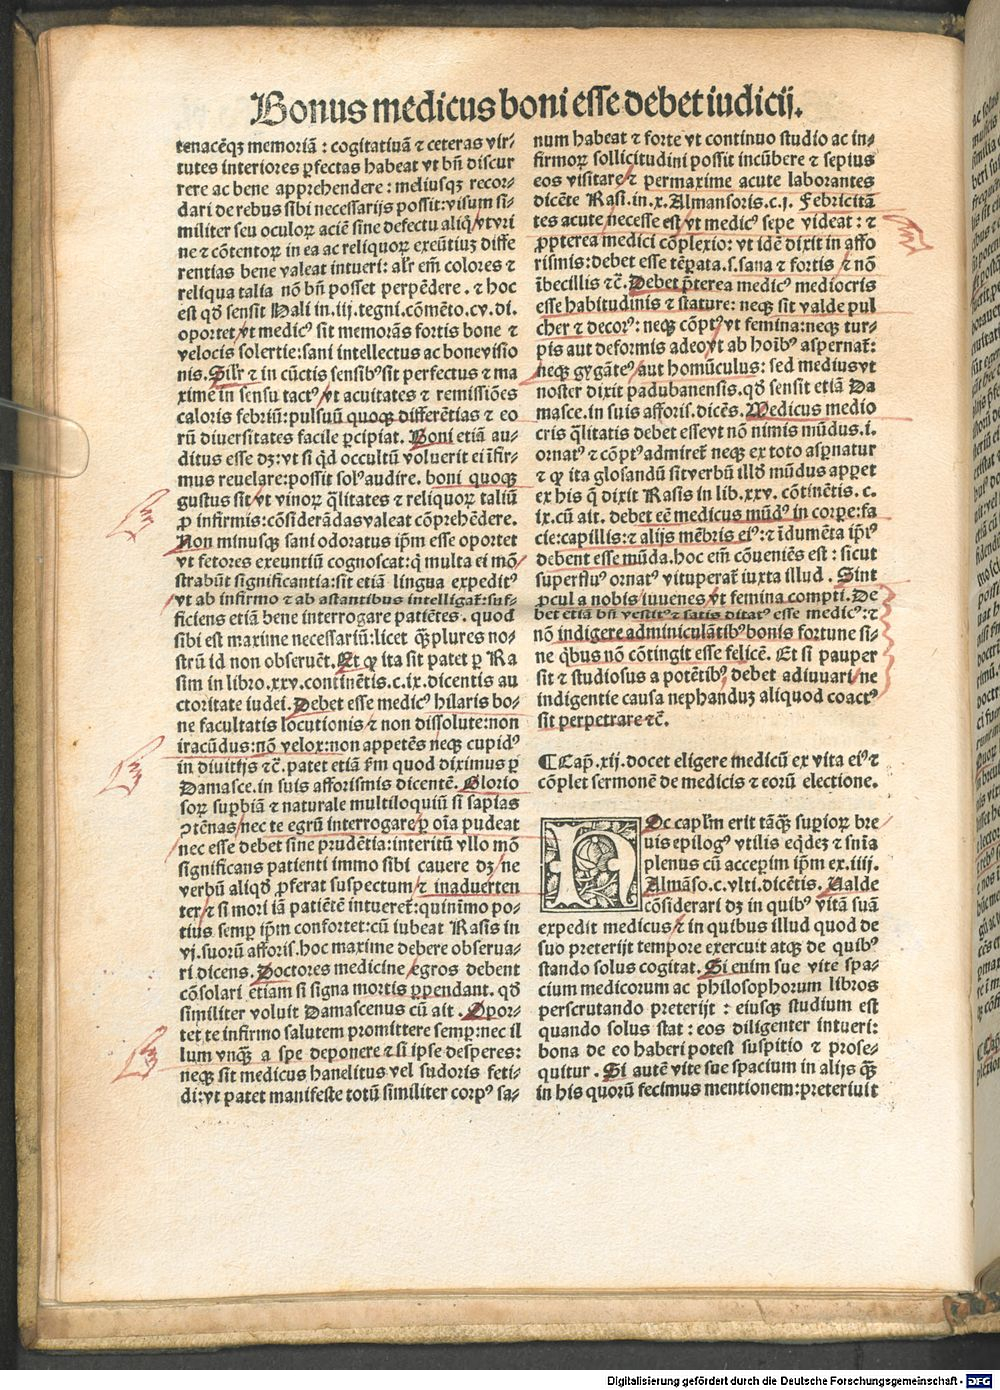 Bonus medicus boni esse debet iudicij.
tenacẽqꝫ memoriã : cogitatiuã ⁊ ceteras vir⸗
tutes interiores ꝑfectas habeat vt bñ discur
rere ac bene apprehendere : meliusqꝫ recor⸗
dari de rebus sibi necessarijs possit : visum si⸗
militer seu oculoꝝ aciẽ sine defectu aliq̃ / vt vri
ne ⁊ cõtentoꝝ in ea ac reliquoꝝ exeũtiuꝫ diffe
rentias bene valeat intueri : alr̃ em̃ colores ⁊
reliqua talia nõ bñ posset perpẽdere . ⁊ hoc
est qđ sensit Hali in .iij. tegni .cõmẽto .cv. di.
oportet vt medicꝰ sit memorãs fortis bone ⁊
velocis solertie : sani intellectus ac bone visio
nis . Silr̃ ⁊ in cũctis sensibꝰ sit perfectus ⁊ ma
xime in sensu tactꝰ / vt acuitates ⁊ remissiões
caloris febriũ : pulsuũ quoqꝫ differẽtias ⁊ eo
rũ diuersitates facile ꝑcipiat . Boni etiã au⸗
ditus esse dꝫ : vt si qd̃ occultũ voluerit ei ĩfir⸗
mus reuelare : possit solꝰ audire . boni quoqꝫ
gustus sit / vt vinoꝝ q̃litates ⁊ reliquoꝝ taliũ
ꝓ infirmis : cõsiderãdas valeat cõprehẽdere.
Non minusqꝫ sani odoratus ip̃m esse oportet
vt fetores exeuntiũ cognoscat : q̃ multa ei mõ⸗
strabũt significantia : sit etiã lingua expeditꝰ
vt ab infirmo ⁊ ab astantibus intelligat̃ : suf⸗
ficiens etiã bene interrogare patiẽtes . quod
sibi est maxime necessariũ : licet q̃ꝫ plures no⸗
strũ id non obseruẽt . Et ꝙ ita sit patet ꝑ Ra
sim in libro .xxv. continẽtis .c. ix. dicentis au
ctoritate iudei . Debet esse medicꝰ hilaris bo⸗
ne facultatis locutionis ⁊ non dissolute : non
iracũdus : nõ velox : non appetẽs neqꝫ cupidꝰ
in diuitijs ⁊c̃ . patet etiã ẜm quod diximus ꝑ
Damasce. in suis afforismis dicentẽ . Glorio
soꝝ suꝑbiã ⁊ naturale multiloquiũ si sapias
ↄtẽnas / nec te egrũ interrogare ꝑ oĩa pudeat
nec esse debet sine prudẽtia : interitũ vllo mõ
significans patienti immo sibi cauere dꝫ / ne
verbũ aliqđ ꝓferat suspectum / ⁊ inaduerten
ter / ⁊ si mori iã patiẽtẽ intueret̃ : quinĩmo po⸗
tius semꝑ ip̃m confortet : cũ iubeat Rasis in
vj. suorũ afforis. hoc maxime debere obserua⸗
ri dicens . Doctores medicine egros debent
cõsolari etiam si signa mortis ꝑpendant . qđ
similiter voluit Damascenus cũ ait . Opor⸗
tet te infirmo salutem promittere semꝑ : nec il
lum vnq̃ꝫ a spe deponere ⁊ si ipse desperes :
neqꝫ sit medicus hanelitus vel sudoris feti⸗
di : vt patet manifeste totũ similiter corpꝰ sa⸗
num habeat ⁊ forte vt continuo studio ac in⸗
firmoꝝ sollicitudini possit incũbere ⁊ sepius
eos visitare / ⁊ permaxime acute laborantes
dicẽte Rasi .in .x. Almansoris .c. j. Febricitã
tes acute necesse est / vt medicꝰ sepe videat : ⁊
ꝓpterea medici cõplexio : vt idẽ dixit in affo
rismis : debet esse tẽꝑata .s. sana ⁊ fortis / ⁊ nõ
ĩbecillis ⁊c̃ . Debet p̃terea medicꝰ mediocris
esse habitudinis ⁊ stature : neqꝫ sit valde pul
cher ⁊ decorꝰ : neqꝫ cõptꝰ vt femina : neqꝫ tur⸗
pis aut deformis adeo vt ab hoĩbꝰ aspernat̃ :
neqꝫ gygãteꝰ / aut homũculus : sed medius vt
noster dixit padubanensis . qđ sensit etiã Da
masce. in suis afforis. dicẽs . Medicus medio
cris q̃litatis debet esse vt nõ nimis mũdus .i.
ornatꝰ ⁊ cõptꝰ admiret̃ neqꝫ ex toto asꝑnatur
⁊ ꝙ ita glosandũ sit verbũ illđ mũdus appet
ex his q̃ dixit Rasis in lib. xxv. cõtinẽtis .c.
ix. cũ ait . debet eẽ medicus mũdꝰ in corꝑe : fa
cie : capillis : ⁊ alijs mẽbris eiꝰ : ⁊ ĩdumẽta ip̃iꝰ
debent esse mũda . hoc em̃ cõueniẽs est : sicut
superfluꝰ ornatꝰ vituperat̃ iuxta illud . Sint
ꝓcul a nobis iuuenes vt femina compti . De
bet etiã bñ vestitꝰ ⁊ satis ditatꝰ esse medicꝰ : ⁊
nõ indigere adminiculãtibꝰ bonis fortune si⸗
ne qbus nõ cõtingit esse felicẽ . Et si pauper
sit ⁊ studiosus a potẽtibꝰ debet adiuuari / ne
indigentie causa nephanduꝫ aliquod coactꝰ
sit perpetrare ⁊c̃ .
¶Cap̃. xij. docet eligere medicũ ex vita eiꝰ ⁊
cõplet sermonẽ de medicis ⁊ eorũ electione.
HOc capl̃m erit tãq̃ꝫ suꝑioꝝ bre
uis epilogꝰ vtilis eq̃dez ⁊ sñia
plenus cũ acceꝑim ip̃m ex .iiij.
Almãso. c. vlti. dicẽtis . Ualde
cõsiderari dꝫ in quibꝰ vitã suã
expedit medicus / ⁊ in quibus illud quod de
suo preterijt tempore exercuit atqꝫ de quibꝰ
stando solus cogitat . Si enim sue vite spa⸗
cium medicorum ac philosophorum libros
perscrutando preterijt : eiusqꝫ studium est
quando solus stat : eos diligenter intueri :
bona de eo haberi potest suspitio ⁊ prose⸗
quitur . Si autẽ vite sue spacium in alijs q̃ꝫ
in his quorũ fecimus mentionem : preteriuit
Digitalisierung gefördert durch die Deutsche Forschungsgemeinschaft - DFG